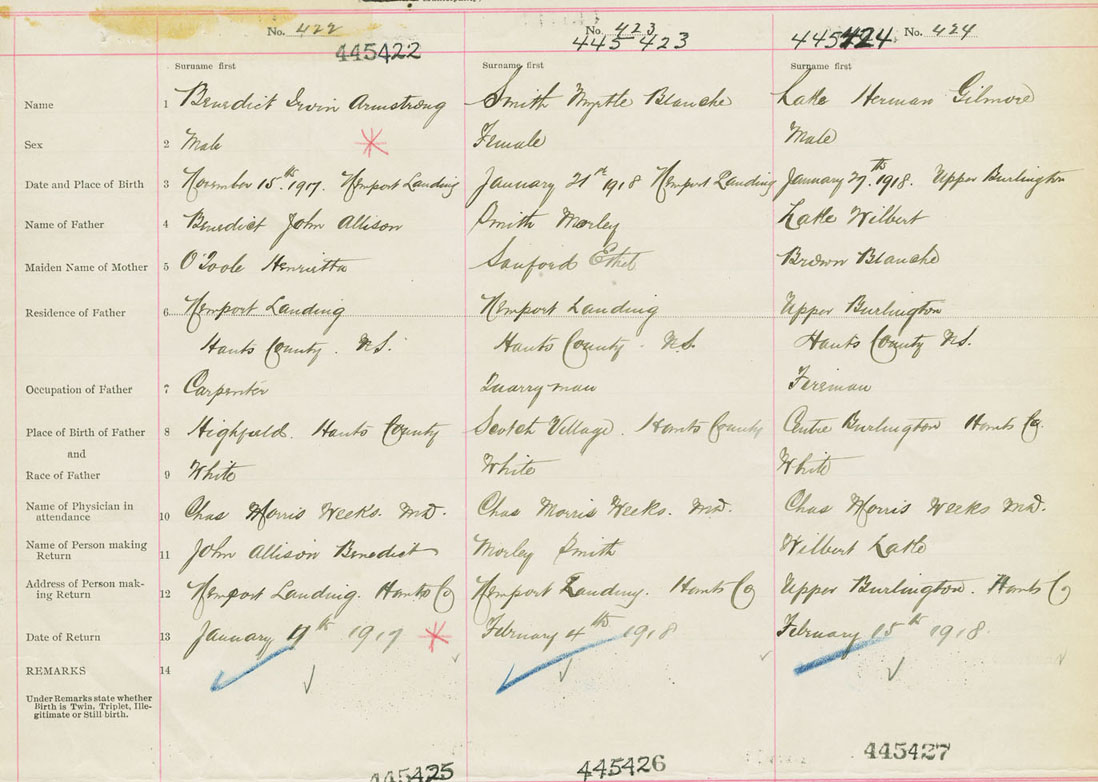 No. 422
445422
No. 423
445 423
445424
No. 424
Surname first
Surname first
Surname first
Name
1
Benedict Irvin Armstrong
Smith Myrtle Blanche
Lake Herman Gilmore
Sex
2
Male
Female
Male
Date and Place of Birth
3
November 15th 1917. Newport Landing
January 21st 1918 Newport Landing
January 27th 1918. Upper Burlington
Name of Father
4
Benedict John Allison
Smith Morley
Lake Wilbert
Maiden Name of Mother
5
O'Toole Henrietta
Sanford Ethel
Brown Blanche
Residence of Father
6
Newport Landing
Newport Landing
Upper Burlington
Hants County. N.S.
Hants County. N.S.
Hants County N.S.
Occupation of Father
7
Carpenter
Quarryman
Fireman
Place of Birth of Father
8
Highfield. Hants County
Scotch Village. Hants County
Centre Burlington Hants Co.
and
Race of Father
9
White
White
White
Name of Physician in
attendance
10
Chas Morris Weeks. M.D.
Chas Morris Weeks. M.D.
Chas Morris Weeks M.D.
Name of Person making
Return
11
John Allison Benedict
Morley Smith
Wilbert Lake
Address of Person mak-
ing Return
12
Newport Landing. Hants Co
Newport Landing. Hants Co
Upper Burlington. Hants Co
Date of Return
13
January 1917
February 4th 1918
February 15th 1918.
REMARKS
14
Under Remarks state whether
Birth is Twin, Triplet, Ille-
gitimate or Still birth.
445425
445426
445427